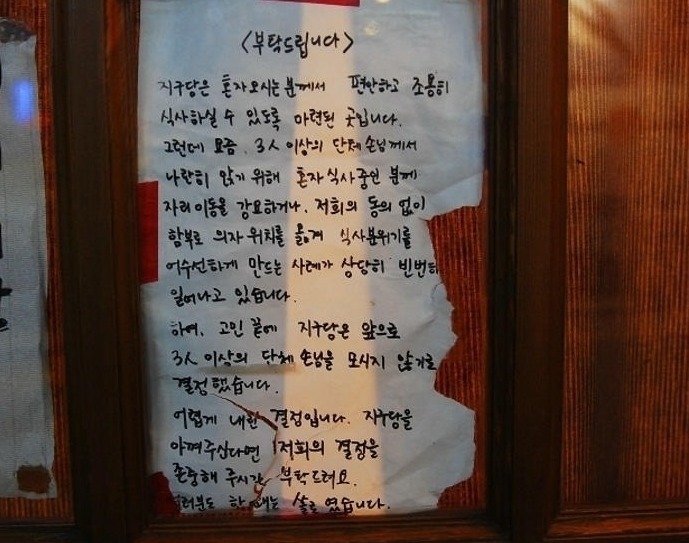 <부탁드립니다>
지구당은 혼자오시는 분께서 편안하고 조용히
식사하실 수 있도록 마련된 곳입니다.
그런데 요즘, 3人 이상의 단체 손님께서
나란히 앉기 위해 혼자 식사중인 분께
자리이동을 강요하거나, 저희의 동의 없이
함부로 의자 위치를 옮겨 식사분위기를
어수선하게 만드는 사례가 상당히 빈번히
일어나고 있습니다.
하여, 고민 끝에 지구당은 앞으로
3人 이상의 단체 손님을 모시지 않기로
결정했습니다.
어렵게 내린 결정입니다. 지구당을
아껴주신다면 저희의 결정을
존중해 주시길 부탁드려요.
여러분도 한 때는 솔로였습니다.